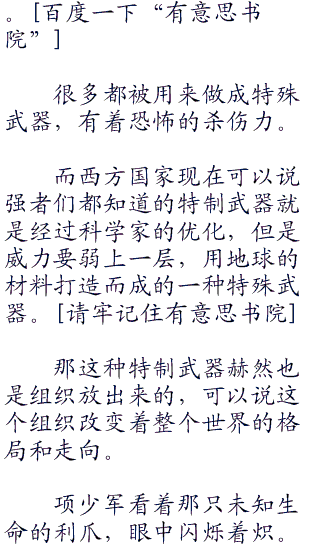 。[百度一下“有意思书
院”]
很多都被用来做成特殊
武器，有着恐怖的杀伤力。
而西方国家现在可以说
强者们都知道的特制武器就
是经过科学家的优化，但是
威力要弱上一层，用地球的
材料打造而成的一种特殊武
器。[请牢记住有意思书院]
那这种特制武器赫然也
是组织放出来的，可以说这
个组织改变着整个世界的格
局和走向。
项少军看着那只未知生
命的利爪，眼中闪烁着炽。